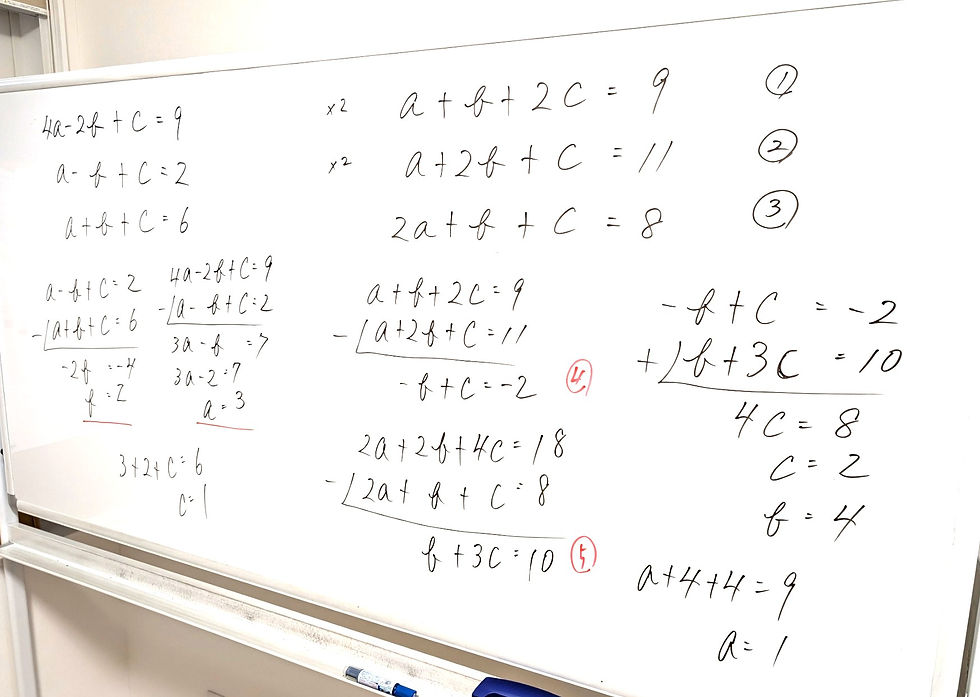 4a-2b+c=9
a-b+c=2
a+b+c=6
a-b+c=2
-)a+b+c=6
-2b=-4
b=2
4a-2b+c=9
-)a-b+c=2
3a-b=7
3a-2=7
a=3
3+2+c=6
c=1
×2 a+b+2c=9 ①
×2 a+2b+c=11 ②
2a+b+c=8 ③
a+b+2c=9
-)a+2b+c=11
-b+c=-2 ④
2a+2b+4c=18
-)2a+b+c=8
b+3c=10 ⑤
-b+c=-2
+)b+3c=10
4c=8
c=2
b=4
a+4+4=9
a=1